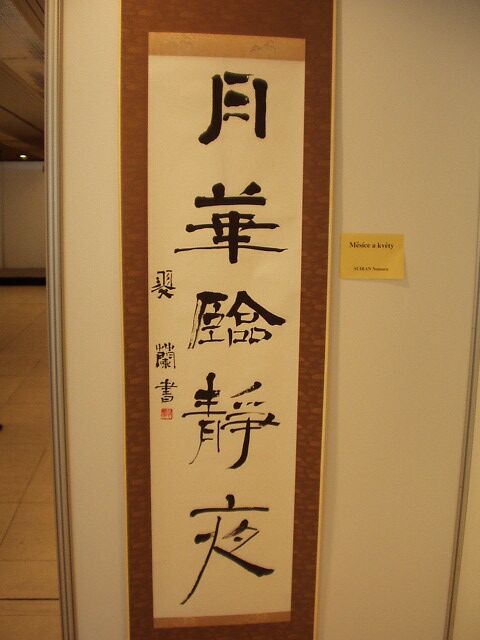 月華臨靜夜
蘭書
Měsíce a květy
SUIRAN Nomura